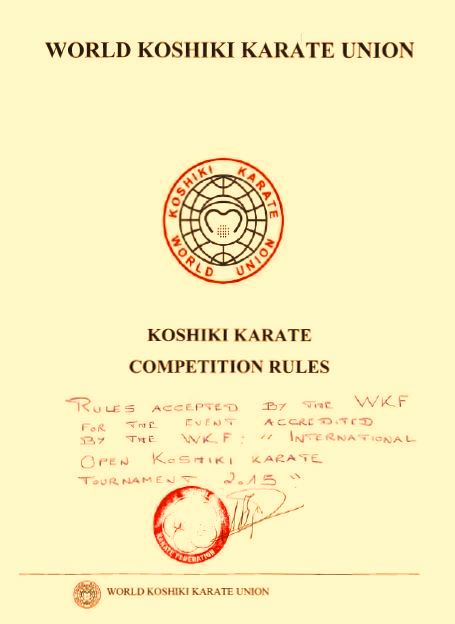 WORLD KOSHIKI KARATE UNION
KOSHIKI KARATE
WORLD UNION
KOSHIKI KARATE
COMPETITION RULES
RULES ACCEPTED BY THE WKF
FOR THE EVENT ACCREDITED
BY THE WKF: " INTERNATIONAL
OPEN KOSHIKI KARATE
TOURNAMENT 2015 "
KARATE FEDERATION
WORLD KOSHIKI KARATE UNION